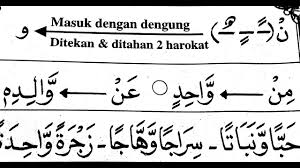 نْ (ـًـ ـٍـ ـٌـ) ← Masuk dengan dengung و
Ditekan & ditahan 2 harokat
مِنْ ← وَّاحِدٍ ○ عَنْ ← وَّالِدِهِ
حَبًّا وَّنَبَاتًا - سِرَاجًا وَّهَّاجًا - زَجْرَةٌ وَّاحِدَةٌ